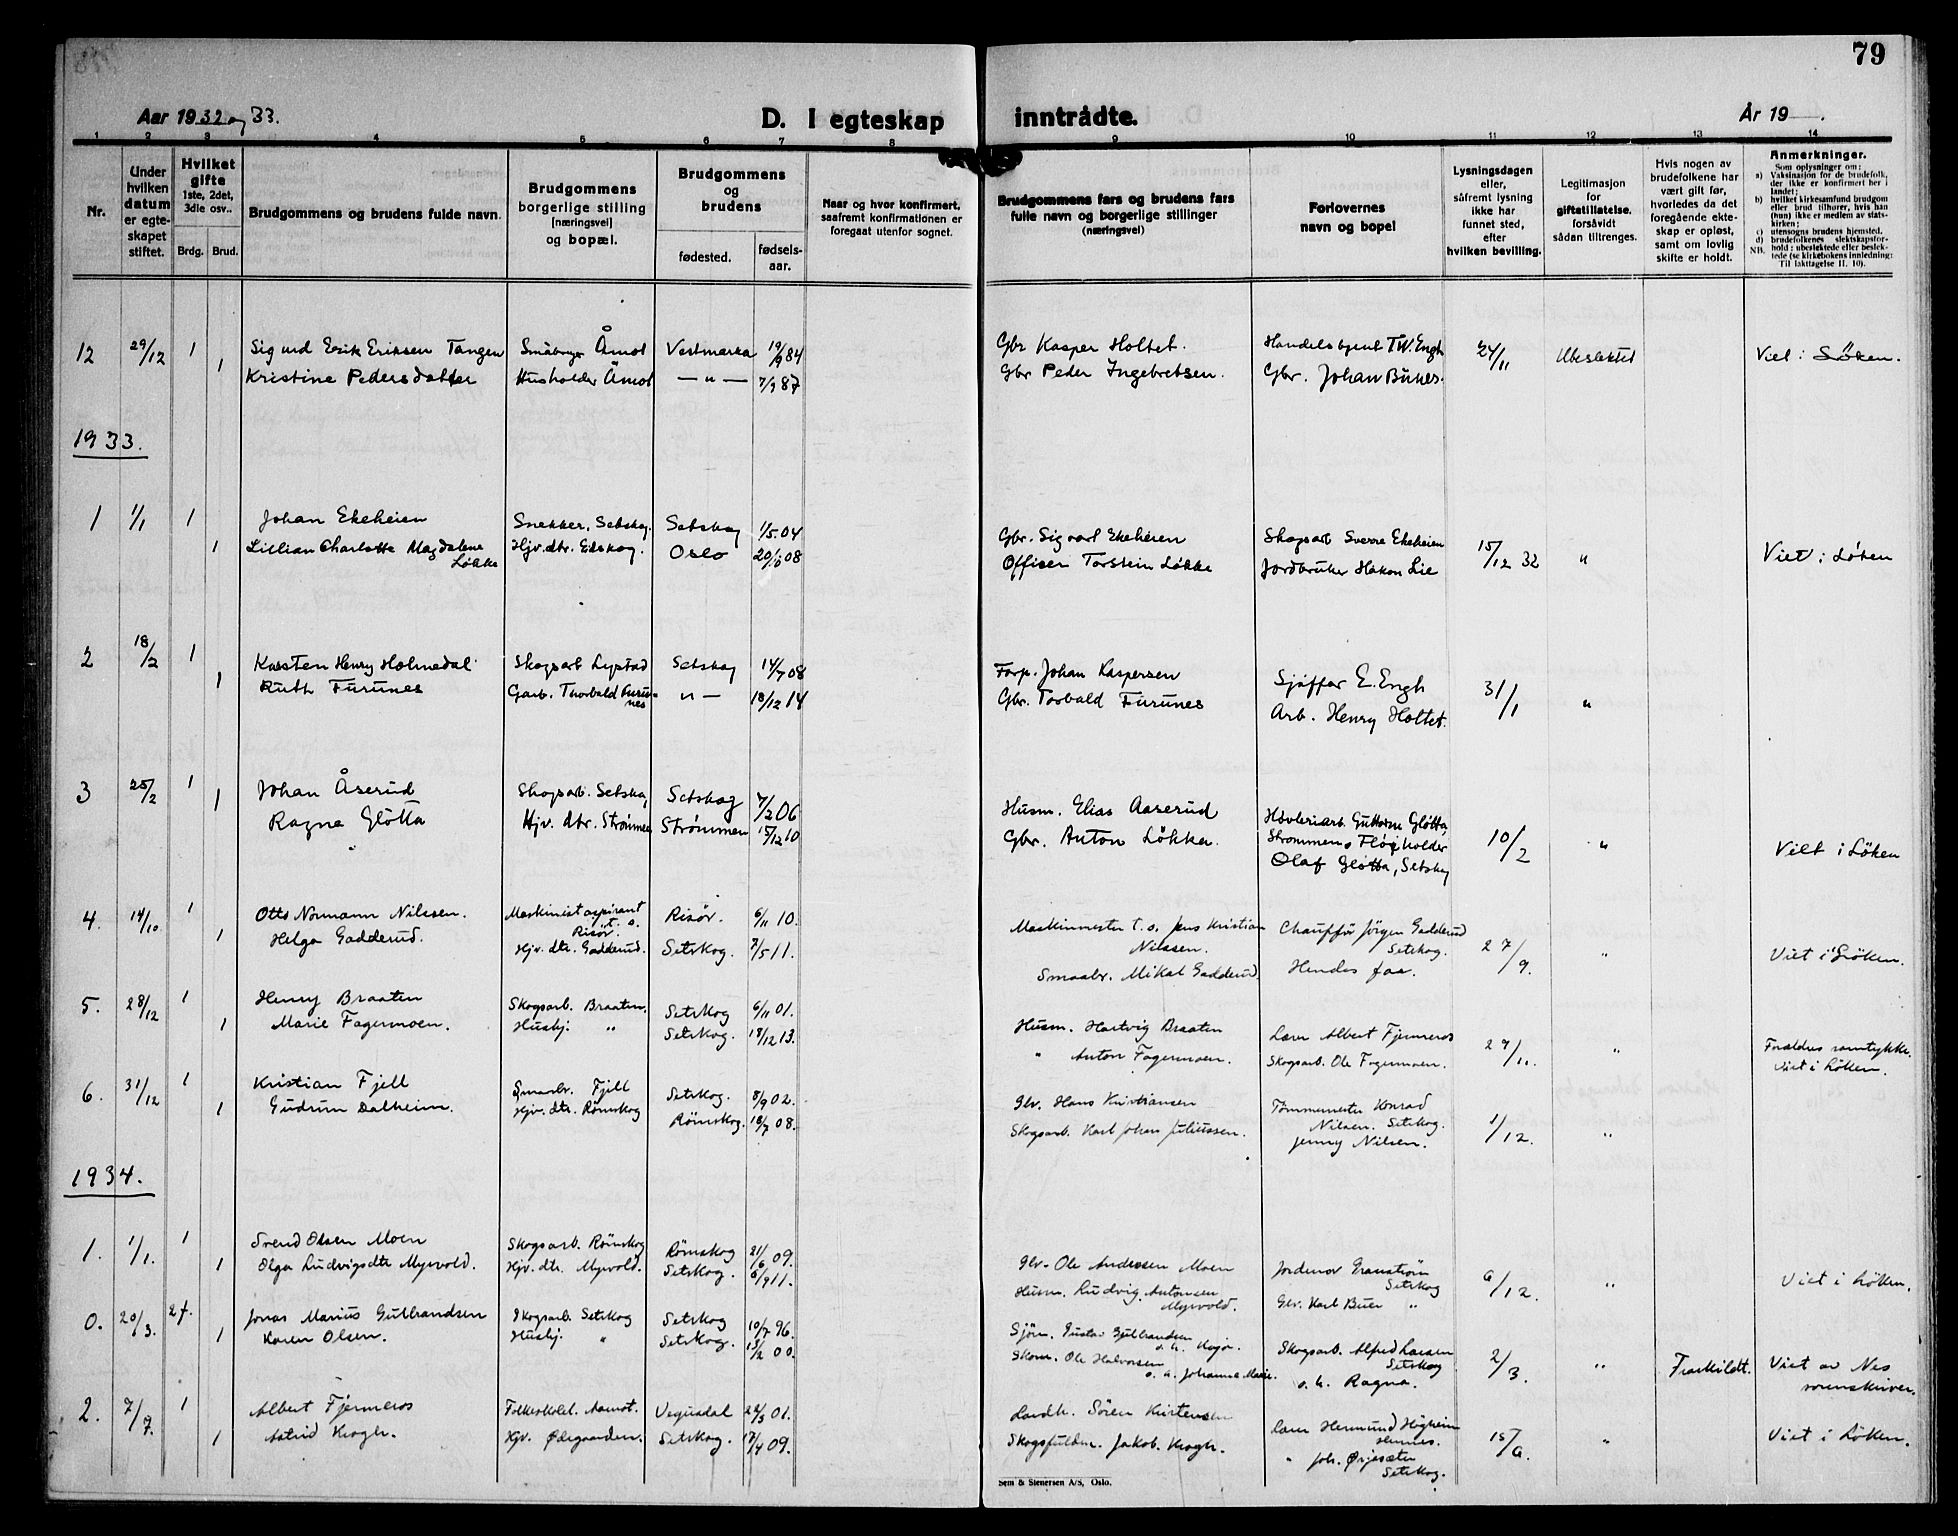 79
Aar 1932 og 33.
D. I egteskap inntrådte.
År 19
1 2 3 4 5 6 7 8 9 10 11 12 13 14
Nr.
Under hvilken datum er egteskapet stiftet.
Hvilket gifte
1ste, 2det, 3die osv..
Brdg. Brud.
Brudgommens og brudens fulde navn.
Brudgommens borgerlige stilling [næringsvei] og bopæl.
Brudgommens og brudens
fødested. fødselsaar.
Naar og hvor konfirmert, saafremt konfirmationen er foregaat utenfor sognet.
Brudgommens fars og brudens fars fulle navn og borgerlige stillinger (næringsvei)
Forlovernes navn og bopel
Lysningsdagen eller, såfremt lysning ikke har funnet sted, efter hvilken bevilling.
Legitimasjon for giftetillatelse, forsåvidt sådan tiltrenges.
Hvis nogen av brudefolkene har vært gift før, hvorledes da det foregående ekteskap er opløst, samt om lovlig skifte er holdt.
Anmerkninger.
Som oplysninger om:
a) Vaksinasjon for de brudefolk, der ikke er konfirmert her i landet;
b) hvilket kirkesamfund brudgom eller brud tilhører, hvis han (hun) ikke er medlem av statskirken;
c) utensogns brudens hjemsted.
d) brudefolkenes slektskapsforhold: ubeslektede eller beslektede (se kirkebokens innledning: Til Iakttagelse II. 10).
NB.
12 29/12 1 Sigurd Erik Eriksen Tangen Småbruger Åmot Vestmarka 19/9 84 Gbr Kasper Holtet. Handelsbejent T.W. Engh 24/11 Ubeslektet Viet i Löken.
1 Kristine Pedersdatter Husholder Åmot — " — 7/9 87 Gbr Peder Ingebretsen. Gbr. Johan Bunes.
1933.
1 1/1 1 Johan Ekeheien Snekker, Setskog. Setskog 1/5 04 Gbr. Sigvart Ekeheien Skogsarb Sverre Ekeheien 15/12 32 " Viet i Løken
1 Lillian Charlotte Magdalene Løkke Hjv. dtr. Edskog. Oslo 20/10 08 Officer Torstein Løkke Jordbruker Håkon Lie
2 18/2 1 Karsten Henry Holmedal Skogsarb Lystad Setskog 14/7 08 Forp. Johan Kaspersen Sjåffør E. Engh 31/1 "
1 Ruth Furunes Garb. Thorbald Furunes " — 18/12 14 Gbr. Torbald Furunes Arb. Henry Holtet.
3 25/2 1 Johan Åserud Skogsarb. Setskog Setskog 7/2 06 Husm. Elias Aaserud Høvleriarb. Guttorm Glötta, 10/2 " Viet i Löken
1 Ragna Glötta Hjv. dtr. Strømmen Strømmen 15/12 10 Gbr. Anton Løkka. Strømmen, Fløgholder
Olaf Glötta, Setskog
4. 14/10 1 Otto Normann Nilssen. Maskinistaspirant t. s. Risör. Risör. 6/11 10. Maskinmester t. s. Jens Kristian Nilssen. Chauffør Jörgen Gadderud Setskog. 27/9. " Viet i Löken.
1 Helga Gadderud. Hjv. dtr. Gadderud. Setskog. 7/5 11. Smaabr. Mikal Gadderud Hendes far.
5. 28/12 1 Henry Braaten Skogsarb. Braaten. Setskog 6/11 01. Husm. Hartvig Braaten Lærer Albert Fjermeros 27/11. " Foreldres samtykke.
1 Marie Fagermoen. Hushj. " Setskog. 18/12 13. " Anton Fagermoen. Skogsarb. Ole Fagermoen. Viet i Löken.
6. 31/12 1 Kristian Fjell Smaabr. Fjell Setskog. 8/9 02. Gbr. Hans Kristiansen Tømmermester Konrad Nilsen. Setskog. 1/12. "
1 Gudrun Dalheim. Hjv. dtr. Rømskog Rømskog. 18/7 08. Skogsarb. Karl Johan Juliussen. Jenny Nilsen.
1934.
1. 1/1. 1 Svend Olsen Moen Skogsarb. Rømskog Rømskog 21/6 09. Gbr. Ole Andersen Moen Granström Setskog 6/12. " Viet i Löken.
1 Olga Ludvigsdtr Myrvold. Hjv. dtr. Myrvold. Setskog. 5/9 11. Husm. Ludvig Antonsen Myrvold. Gbr. Karl Buer "
0. 20/3. 2 f. Jonas Marius Gulbrandsen Skogsarb. Setskog Setskog 10/7 96. Sjöm. Gustav Gulbrandsen o. h. Kaja. Skogsarb. Alfred Larsen Setskog 2/3. " Fraskildt. Viet av Nes
1 Karen Olsen. Hushj. " Setskog. 13/2 00. Skom. Ole Halvorsen o. h. Johanne Marie. o. h. Ragna. sorenskriver.
2. 7/7. 1 Albert Fjermeros Folkeskolel. Aamot. Vegusdal 24/3 01. Landh. Sören Kristensen Lærer Hermund Högheim Hemnes. 15/6. " Viet i Löken.
1 Astrid Krogh. Hjv. Ødegaarden. Setskog. 17/4 09. Skogsfuldm. Jakob Krogh. " Joh. Ørjesæter Setskog.
Sem & Stenersen A/S, Oslo.